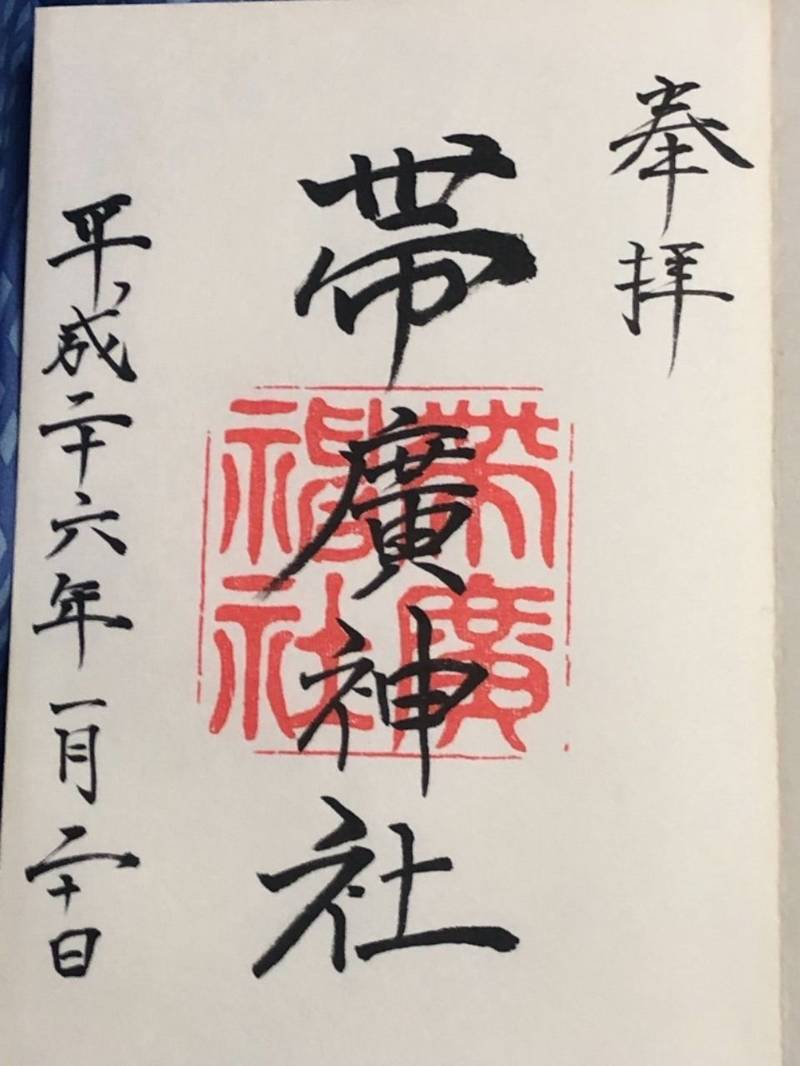 奉拝
帯廣神社
帯廣神社
平成二十六年一月二十日